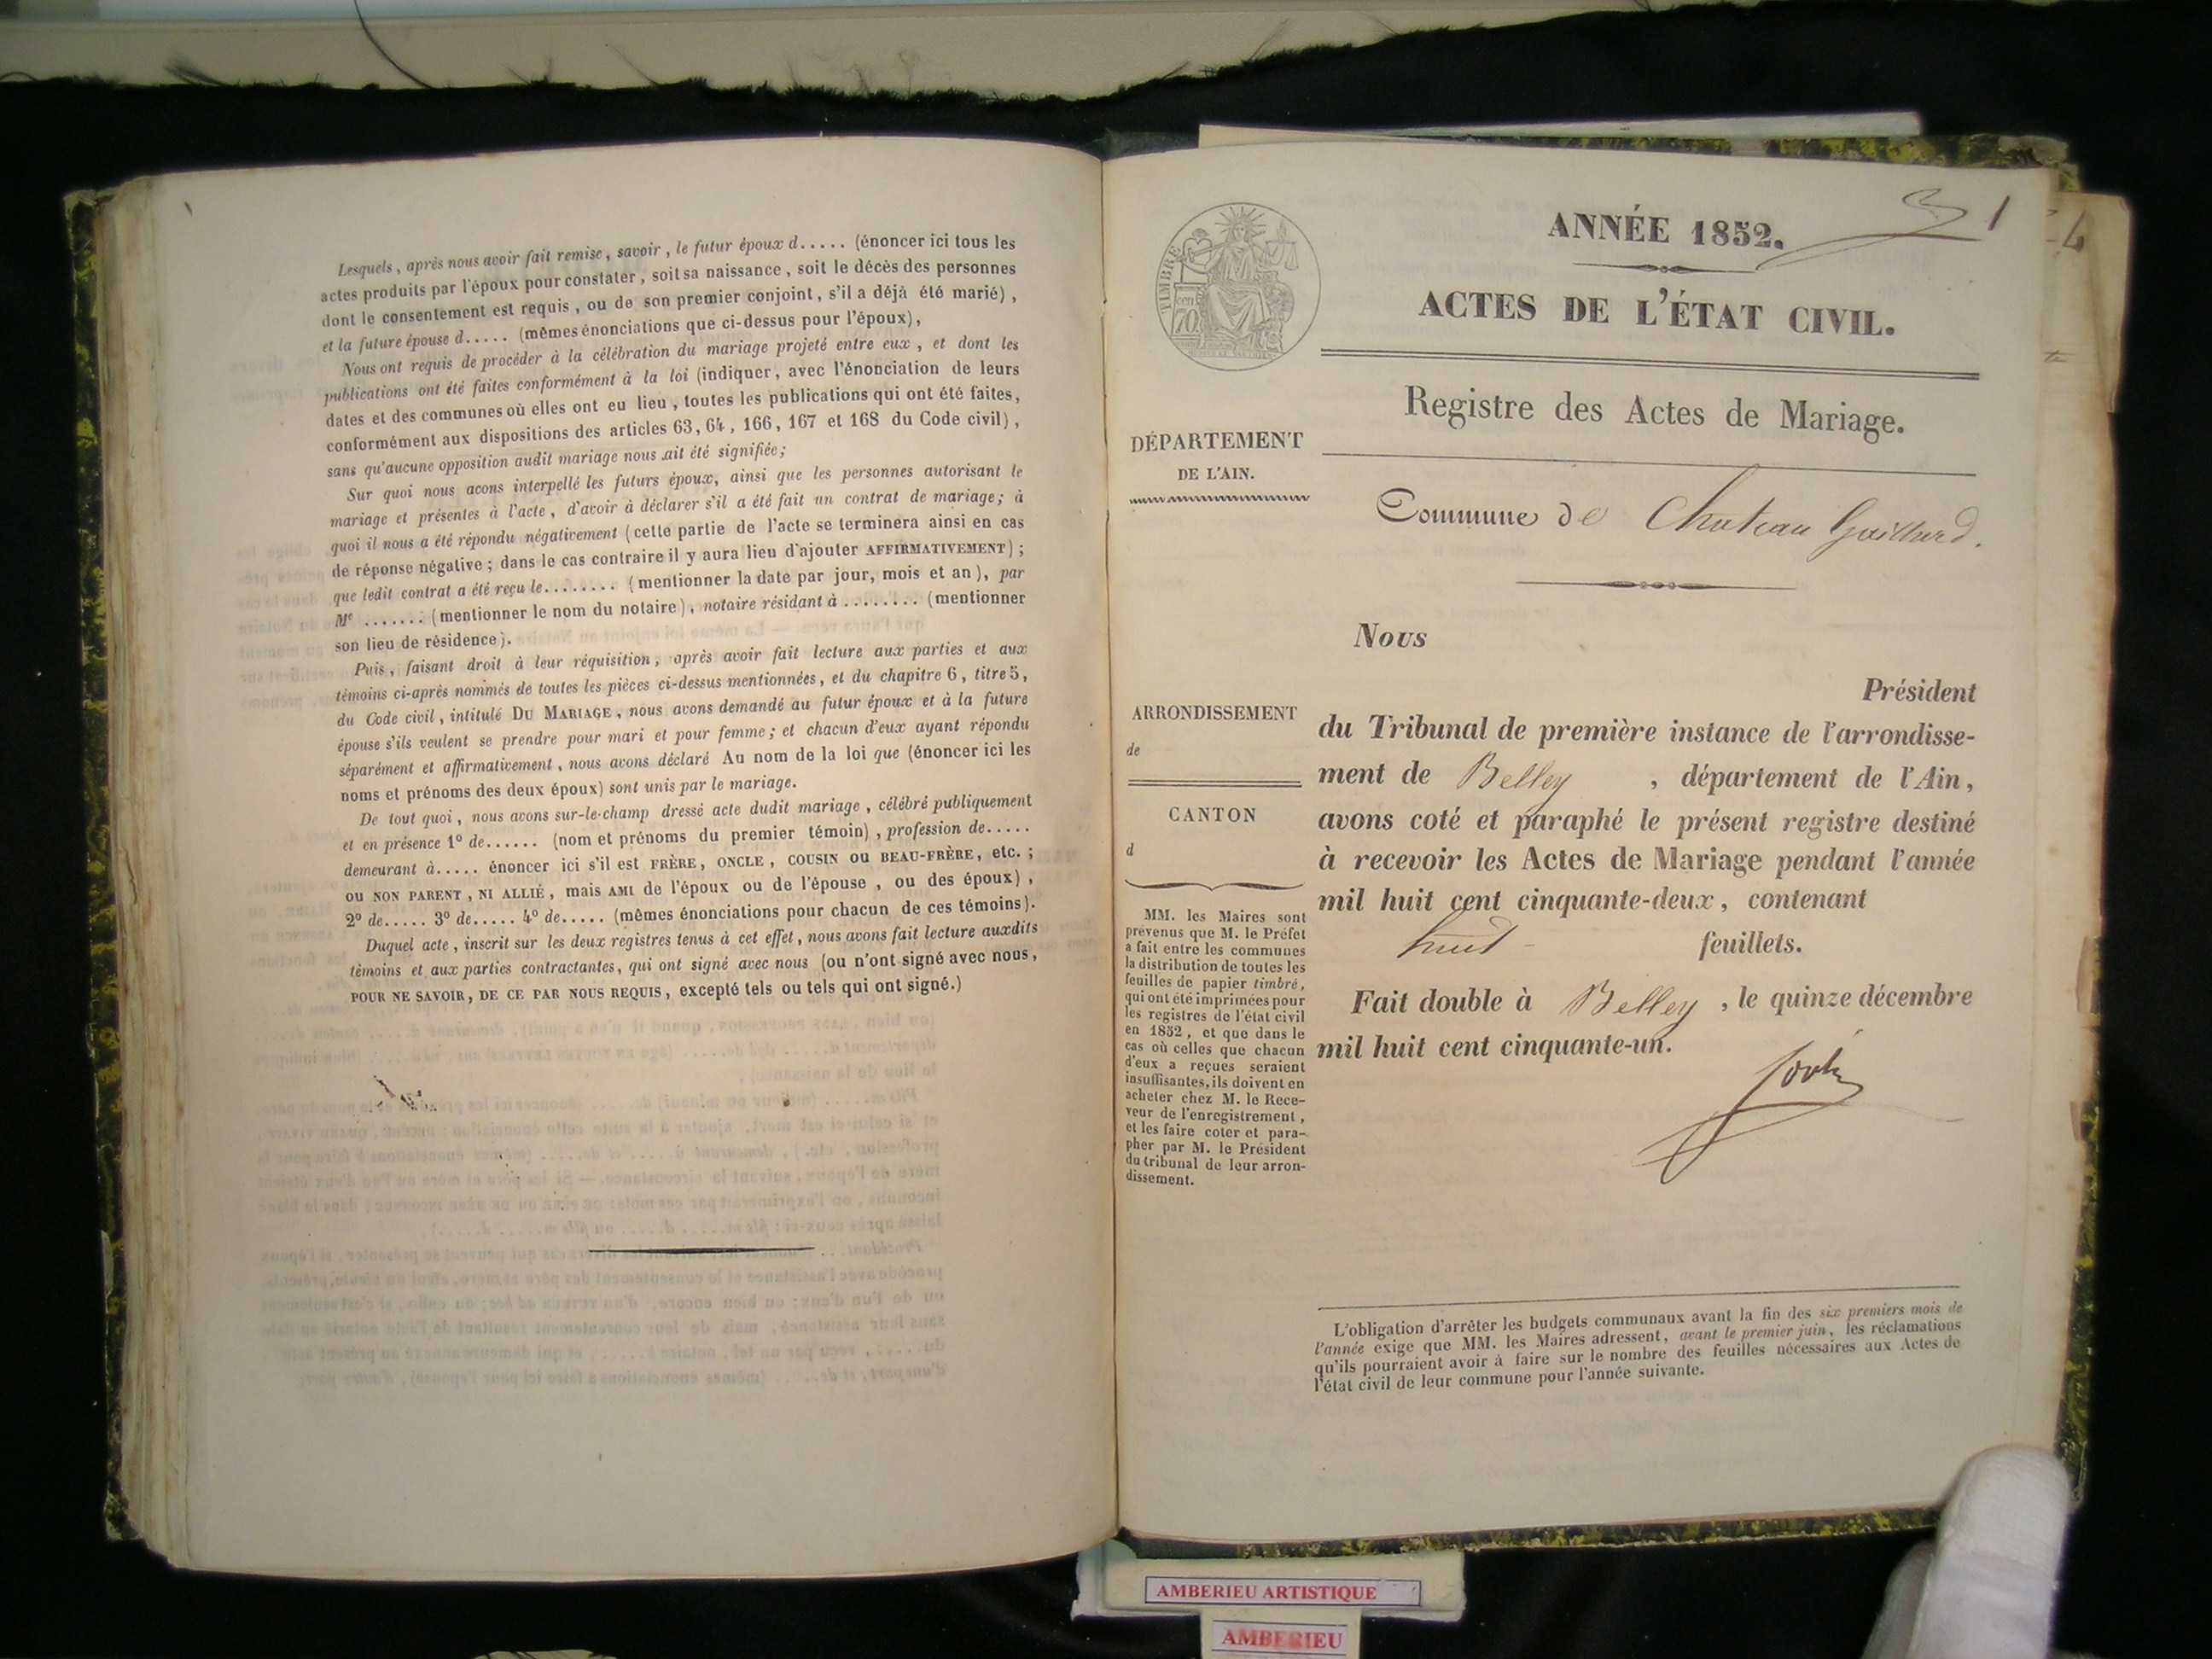 Lesquels, après nous avoir fait remise, savoir, le futur époux d..... (énoncer ici tous les
actes produits par l'époux pour constater, soit sa naissance, soit le décès des personnes
dont le consentement est requis, ou de son premier conjoint, s'il a déjà été marié),
et la future épouse d..... (mêmes énonciations que ci-dessus pour l'époux),
Nous ont requis de procéder à la célébration du mariage projeté entre eux, et dont les
publications ont été faites conformément à la loi (indiquer, avec l'énonciation de leurs
dates et des communes où elles ont eu lieu, toutes les publications qui ont été faites,
conformément aux dispositions des articles 63, 64, 166, 167 et 168 du Code civil),
sans qu'aucune opposition audit mariage nous ait été signifiée;
Sur quoi nous avons interpellé les futurs époux, ainsi que les personnes autorisant le
mariage et présentes à l'acte, d'avoir à déclarer s'il a été fait un contrat de mariage; à
quoi il nous a été répondu négativement (cette partie de l'acte se terminera ainsi en cas
de réponse négative; dans le cas contraire il y aura lieu d'ajouter AFFIRMATIVEMENT);
que ledit contrat a été reçu le........ (mentionner la date par jour, mois et an), par
Me ....... (mentionner le nom du notaire), notaire résidant à ........ (mentionner
son lieu de résidence).
Puis, faisant droit à leur réquisition, après avoir fait lecture aux parties et aux
témoins ci-après nommés de toutes les pièces ci-dessus mentionnées, et du chapitre 6, titre 5,
du Code civil, intitulé DU MARIAGE, nous avons demandé au futur époux et à la future
épouse s'ils veulent se prendre pour mari et pour femme; et chacun d'eux ayant répondu
séparément et affirmativement, nous avons déclaré Au nom de la loi que (énoncer ici les
noms et prénoms des deux époux) sont unis par le mariage.
De tout quoi, nous avons sur-le-champ dressé acte dudit mariage, célébré publiquement
et en présence 1º de...... (nom et prénoms du premier témoin), profession de.....
demeurant à..... énoncer ici s'il est FRÈRE, ONCLE, COUSIN ou BEAU-FRÈRE, etc.;
OU NON PARENT, NI ALLIÉ, mais AMI de l'époux ou de l'épouse, ou des époux),
2º de..... 3º de..... 4º de..... (mêmes énonciations pour chacun de ces témoins).
Duquel acte, inscrit sur les deux registres tenus à cet effet, nous avons fait lecture auxdits
témoins et aux parties contractantes, qui ont signé avec nous (ou n'ont signé avec nous,
POUR NE SAVOIR, DE CE PAR NOUS REQUIS, excepté tels ou tels qui ont signé.)
TIMBRE
cen
70
ANNÉE 1852.
1
ACTES DE L'ÉTAT CIVIL.
Registre des Actes de Mariage.
DÉPARTEMENT
DE L'AIN.
Commune de Chateau Gaillard.
Nous
Président
du Tribunal de première instance de l'arrondisse-
ment de Belley, département de l'Ain,
avons coté et paraphé le présent registre destiné
à recevoir les Actes de Mariage pendant l'année
mil huit cent cinquante-deux, contenant
huit feuillets.
Fait double à Belley, le quinze décembre
mil huit cent cinquante-un.
ARRONDISSEMENT
de
CANTON
d
MM. les Maires sont
prévenus que M. le Préfet
a fait entre les communes
la distribution de toutes les
feuilles de papier timbré,
qui ont été imprimées pour
les registres de l'état civil
en 1852, et que dans le
cas où celles que chacun
d'eux a reçues seraient
insuffisantes, ils doivent en
acheter chez M. le Rece-
veur de l'enregistrement,
et les faire coter et para-
pher par M. le Président
du tribunal de leur arron-
dissement.
L'obligation d'arrêter les budgets communaux avant la fin des six premiers mois de
l'année exige que MM. les Maires adressent, avant le premier juin, les réclamations
qu'ils pourraient avoir à faire sur le nombre des feuilles nécessaires aux Actes de
l'état civil de leur commune pour l'année suivante.
AMBERIEU ARTISTIQUE
AMBERIEU